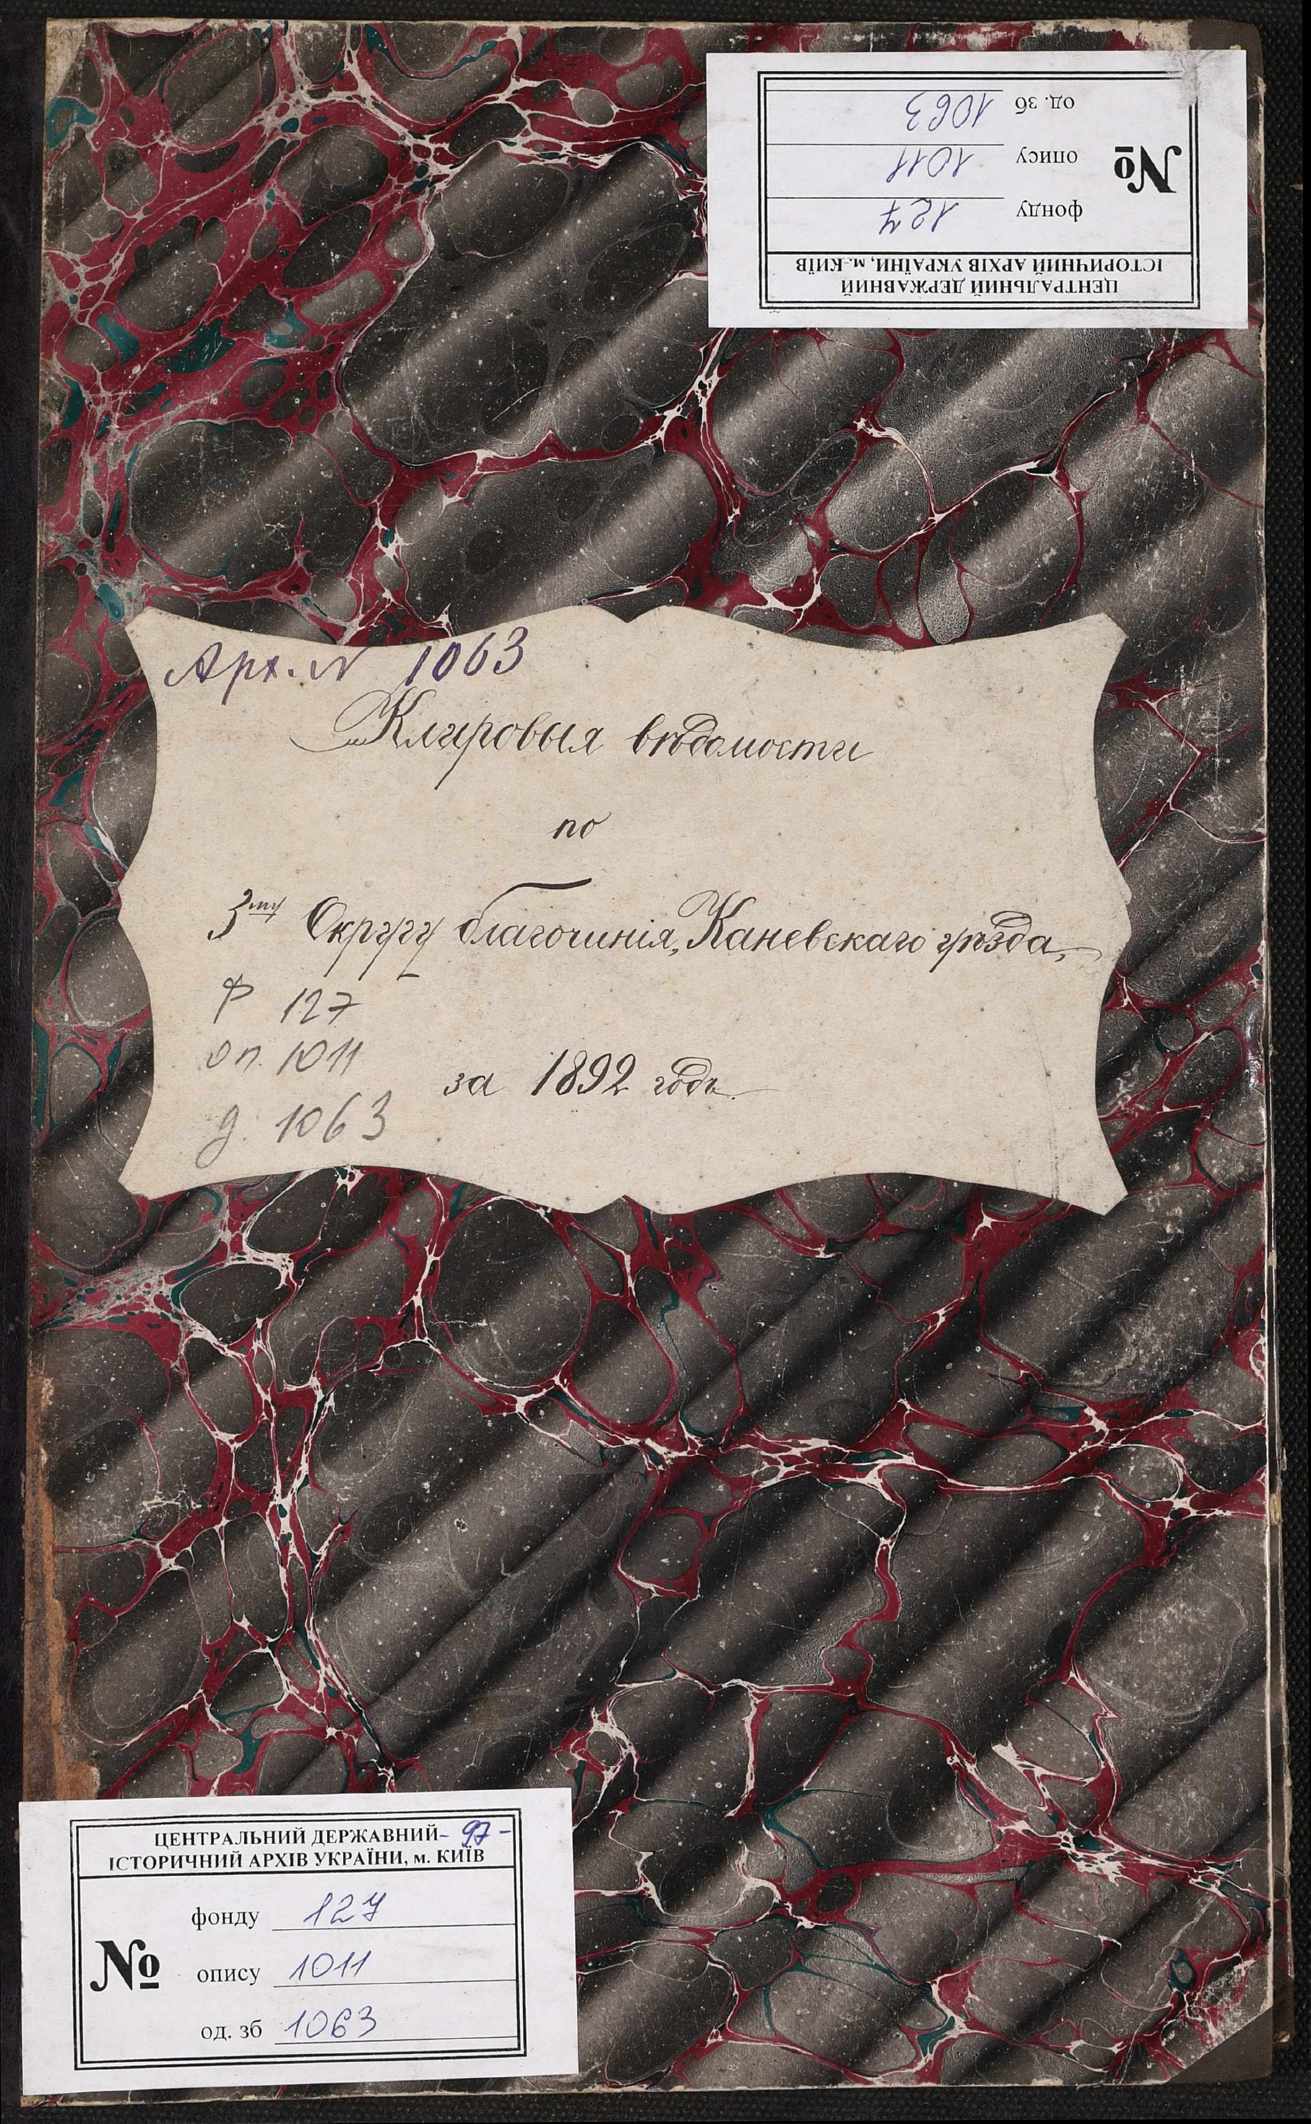 ЦЕНТРАЛЬНИЙ ДЕРЖАВНИЙ
ІСТОРИЧНИЙ АРХІВ УКРАЇНИ, м. КИЇВ
№
фонду 127
опису 1011
од. зб 1063
Арх. N 1063
Клировыя вѣдомости
по
3му Округу благочинія, Каневскаго уѣзда,
Ф 127
оп. 1011
д. 1063
за 1892 годъ.
ЦЕНТРАЛЬНИЙ ДЕРЖАВНИЙ - 97 -
ІСТОРИЧНИЙ АРХІВ УКРАЇНИ, м. КИЇВ
№
фонду 127
опису 1011
од. зб 1063